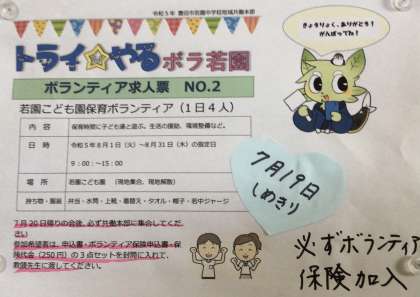 令和5年 豊田市若園中学校地域共働本部
トライ☆やる ボラ若園
ボランティア求人票 NO.2
きょうりょく、ありがとう!
がんばってね!
若園こども園保育ボランティア(1日4人)
内容 保育時間に子ども達と遊ぶ。生活の援助、環境整備など。
日時 令和5年8月1日(火)~8月31日(木)の指定日
9:00~15:00
場所 若園こども園 (現地集合、現地解散)
持ち物・服装 弁当・水筒・上靴・着替え・タオル・帽子・若中ジャージ
7月19日
しめきり
7月20日帰りの会後、必ず共働本部に集合してくだ
さい
参加希望者は、申込書・ボランティア保険申込書・保
険代金(250円)の3点セットを封筒に入れて、
教頭先生に渡してください。
必ずボランティア
保険加入